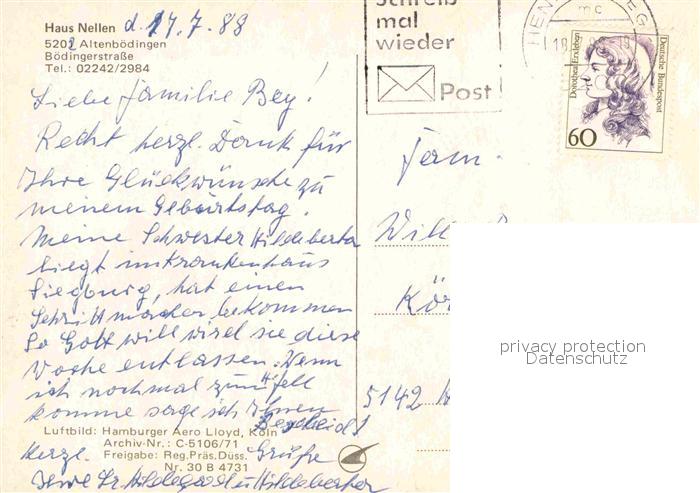 Haus Nellen d. 17.7.88
5202 Altenbödingen
Bödingerstraße
Tel.: 02242/2984
Liebe Familie Bey!
Recht herzl. Dank für
Ihre Glückwünsche zu
meinem Geburtstag.
Meine Schwester Hildeberta
liegt im Krankenhaus
Siegburg, hat einen
Schrittmacher bekommen
So Gott will wird sie diese
Woche entlassen. Wenn
ich nochmal zum
komme sage ich Ihnen
Bescheid!
Luftbild: Hamburger Aero Lloyd, Köln
Archiv-Nr.: C-5106/71
Freigabe: Reg.Präs.Düss.
Nr. 30 B 4731
Herzl. Grüße
Ihre Sr. Hildegard u Hildeberta
Schreib
mal
wieder
Post
HEN
mc
18
Dorothea Erxleben
Deutsche Bundespost
60
Fam.
5142
privacy protection
Datenschutz